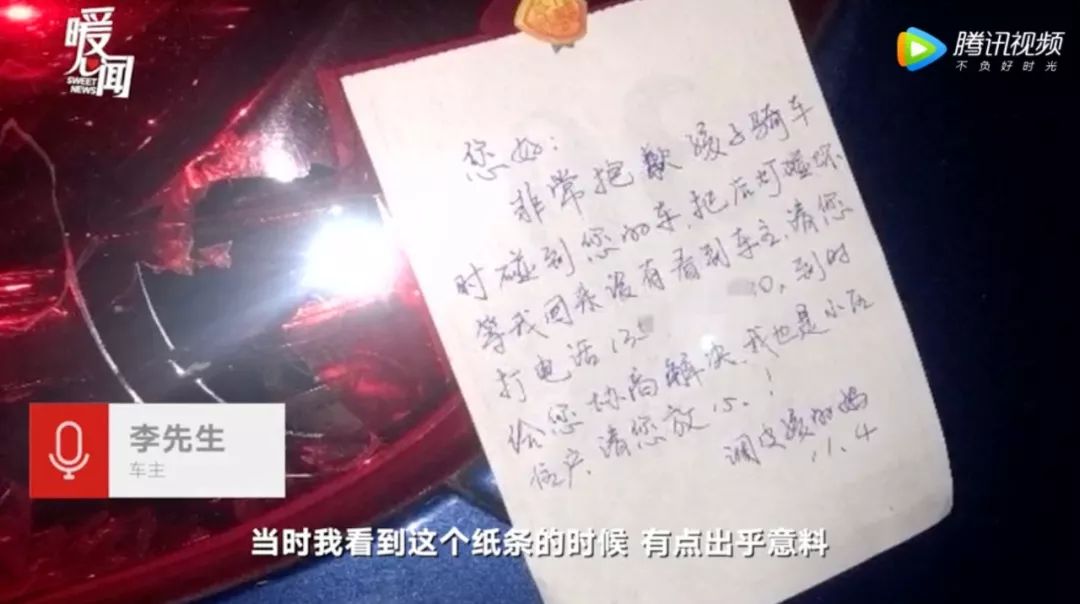 暖闻
SWEET
NEWS
腾讯视频
不负好时光
您好:
非常抱歉孩子骑车
时碰到您的车,把后灯碰坏
等我回来没有看到车主,请您
打电话135 0,到时
给您协商解决,我也是小区
住户,请您放心!
调皮孩的妈
11.4
李先生
车主
当时我看到这个纸条的时候 有点出乎意料